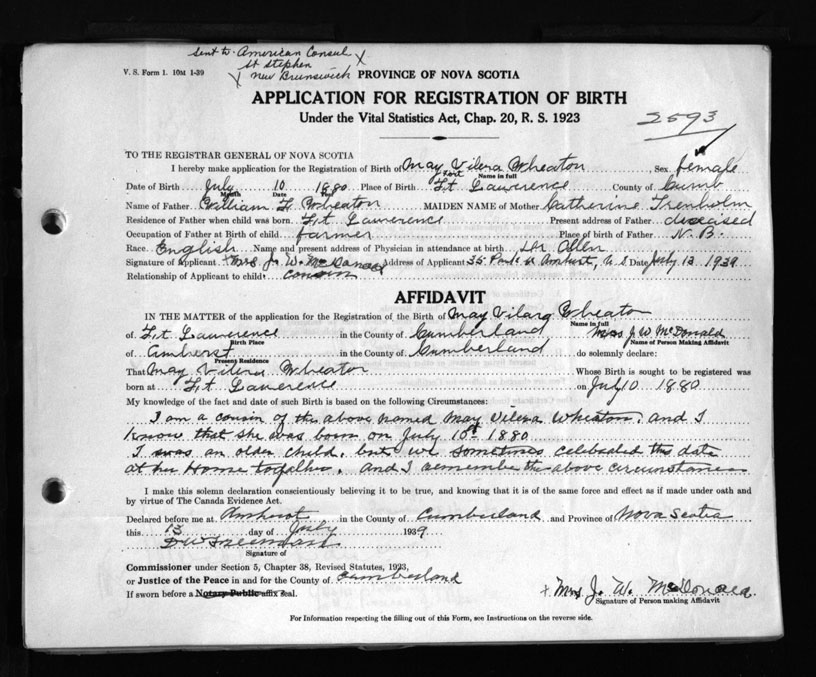 Sent to American Consul
St Stephen
New Brunswick
V. S. Form 1. 10M 1-39
PROVINCE OF NOVA SCOTIA
APPLICATION FOR REGISTRATION OF BIRTH
Under the Vital Statistics Act, Chap. 20, R. S. 1923
2593
TO THE REGISTRAR GENERAL OF NOVA SCOTIA
I hereby make application for the Registration of Birth of May Vilena Wheaton Sex female
Name in full
Fort
Date of Birth July 10 1880 Place of Birth Ft Lawrence County of Cumb
Month Date Year
Name of Father William F. Wheaton MAIDEN NAME of Mother Catherine Trenholm
Residence of Father when child was born Ft Lawrence Present address of Father deceased
Occupation of Father at Birth of child farmer Place of birth of Father N. B.
Race English Name and present address of Physician in attendance at birth Dr Allen
Signature of Applicant Mrs J. W. McDonald Address of Applicant 35 Amherst, N S Date July 13 1939
Relationship of Applicant to child cousin
AFFIDAVIT
IN THE MATTER of the application for the Registration of the Birth of May Wheaton
Name in full
of Ft Lawrence in the County of Cumberland Mrs J W McDonald
Birth Place Name of Person Making Affidavit
of Amherst in the County of Cumberland do solemnly declare:
Present Residence
That May Vilena Wheaton Whose Birth is sought to be registered was
born at Ft Lawrence on July 10 1880
My knowledge of the fact and date of such Birth is based on the following Circumstances:
I am a cousin of the above named May Vilena Wheaton, and I
know that she was born on July 10th 1880
I was an older child, but we sometimes celebrated this date
at her Home together. And I remember the above circumstances
I make this solemn declaration conscientiously believing it to be true, and knowing that it is of the same force and effect as if made under oath and
by virtue of The Canada Evidence Act.
Declared before me at Amherst in the County of Cumberland and Province of Nova Scotia
this 13 day of July 1939
Signature of
Commissioner under Section 5, Chapter 38, Revised Statutes, 1923,
or Justice of the Peace in and for the County of Cumberland
If sworn before a Notary Public affix seal.
Mrs J. W. McDonald.
Signature of Person making Affidavit
For Information respecting the filling out of this Form, see Instructions on the reverse side.